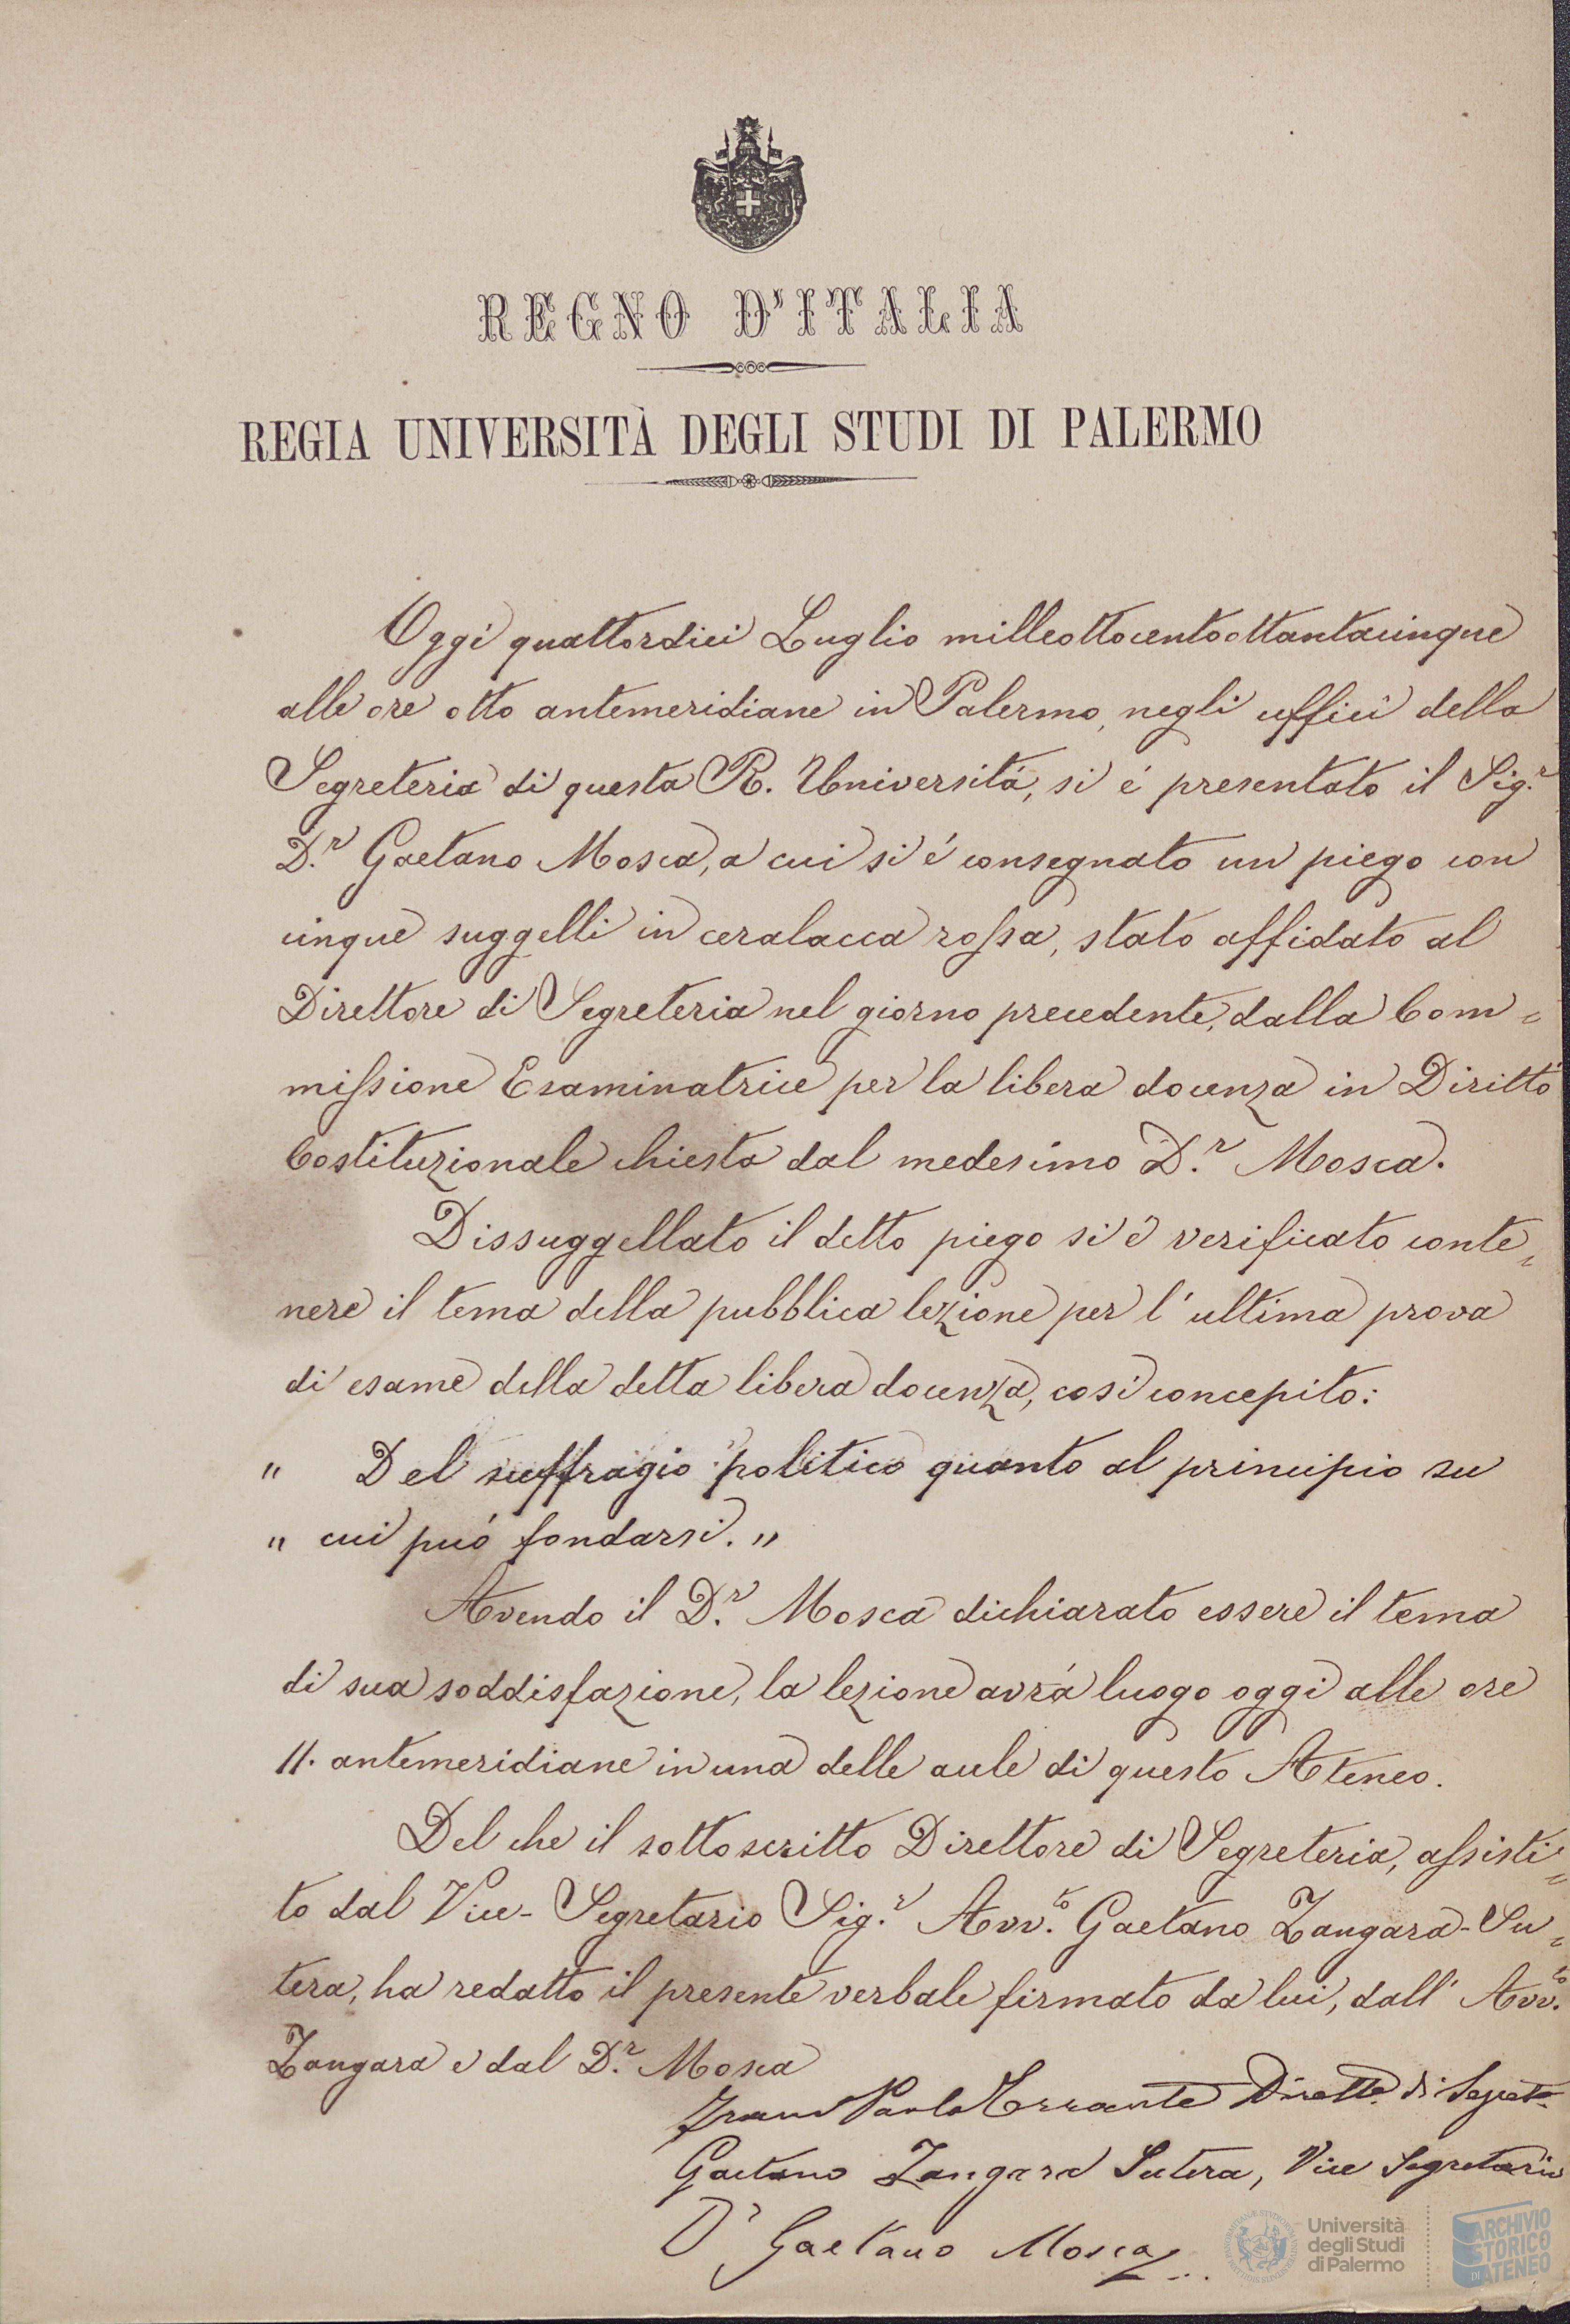 REGNO D'ITALIA
REGIA UNIVERSITÀ DEGLI STUDI DI PALERMO
Oggi quattordici Luglio milleottocentottantacinque
alle ore otto antemeridiane in Palermo, negli uffici della
Segreteria di questa R. Università, si è presentato il Sig.r
D.r Gaetano Mosca, a cui si è consegnato un piego con
cinque suggelli in ceralacca rossa, stato affidato al
Direttore di Segreteria nel giorno precedente, dalla Com=
missione Esaminatrice per la libera docenza in Diritto
Costituzionale chiesta dal medesimo D.r Mosca.
Dissuggellato il detto piego si è verificato conte=
nere il tema della pubblica lezione per l'ultima prova
di esame della detta libera docenza, così concepito:
" Del suffragio politico quanto al principio su
" cui può fondarsi. "
Avendo il D.r Mosca dichiarato essere il tema
di sua soddisfazione, la lezione avrà luogo oggi alle ore
11. antemeridiane in una delle aule di questo Ateneo.
Del che il sottoscritto Direttore di Segreteria, assisti=
to dal Vice-Segretario Sig.r Avv.to Gaetano Zangara-Su=
tera, ha redatto il presente verbale firmato da lui, dall' Avv.to
Zangara e dal D.r Mosca
Paolo Errante Dirett.e di Segret.a
Gaetano Zangara Sutera, Vice Segretario
D.r Gaetano Mosca
Università
degli Studi
di Palermo
ARCHIVIO
STORICO
DI ATENEO